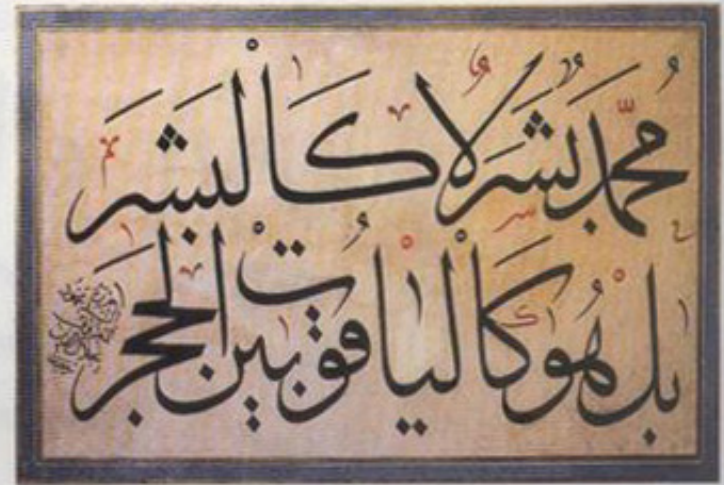 محمد بشر لا كالبشر
بل هو كالياقوت بين الحجر